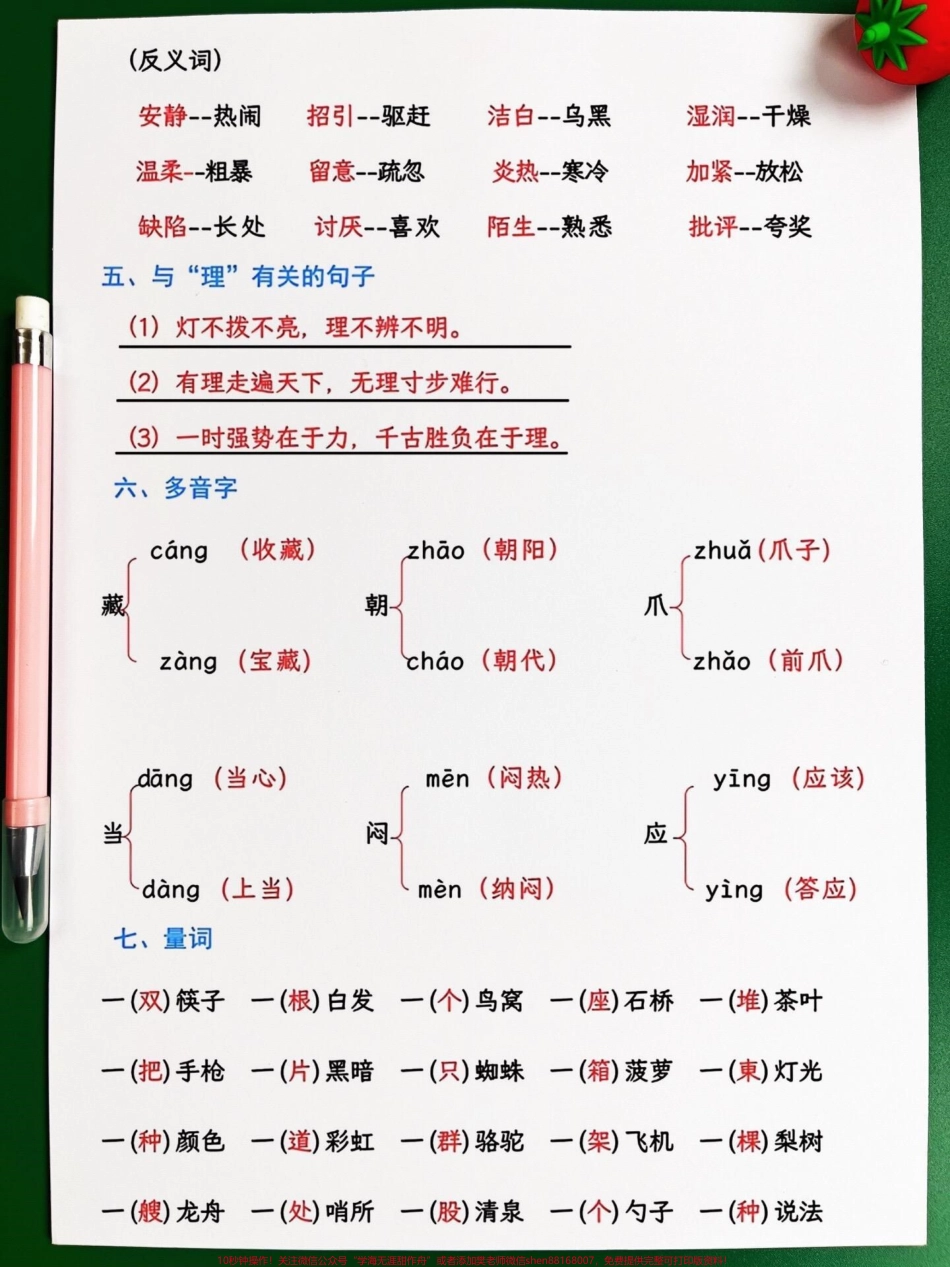 (反义词)
安静--热闹 招引--驱赶 洁白--乌黑 湿润--干燥
温柔--粗暴 留意--疏忽 炎热--寒冷 加紧--放松
缺陷--长处 讨厌--喜欢 陌生--熟悉 批评--夸奖
五、与“理”有关的句子
(1) 灯不拨不亮，理不辨不明。
(2) 有理走遍天下，无理寸步难行。
(3) 一时强势在于力，千古胜负在于理。
六、多音字
cáng （收藏） zhāo（朝阳） zhuǎ(爪子)
藏 朝 爪
zàng （宝藏） cháo（朝代） zhǎo（前爪）
dāng （当心） mēn（闷热） yīng （应该）
当 闷 应
dàng （上当） mèn（纳闷） yìng （答应）
七、量词
一(双)筷子 一(根)白发 一(个)鸟窝 一(座)石桥 一(堆)茶叶
一(把)手枪 一(片)黑暗 一(只)蜘蛛 一(箱)菠萝 一(東)灯光
一(种)颜色 一(道)彩虹 一(群)骆驼 一(架)飞机 一(棵)梨树
一(艘)龙舟 一(处)哨所 一(股)清泉 一(个)勺子 一(种)说法
10秒钟操作！关注微信公众号“学海无涯甜作舟”或者添加樊老师微信shen88168007，免费提供完整可打印版资料！